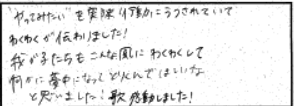 "やってみたい"を実際行動にうつされていて
わくわくが伝わりました!
我が子たちもこんな風にわくわくして
何かに夢中になって とりくんでほしいな
と思いました! 歌 感動しました!